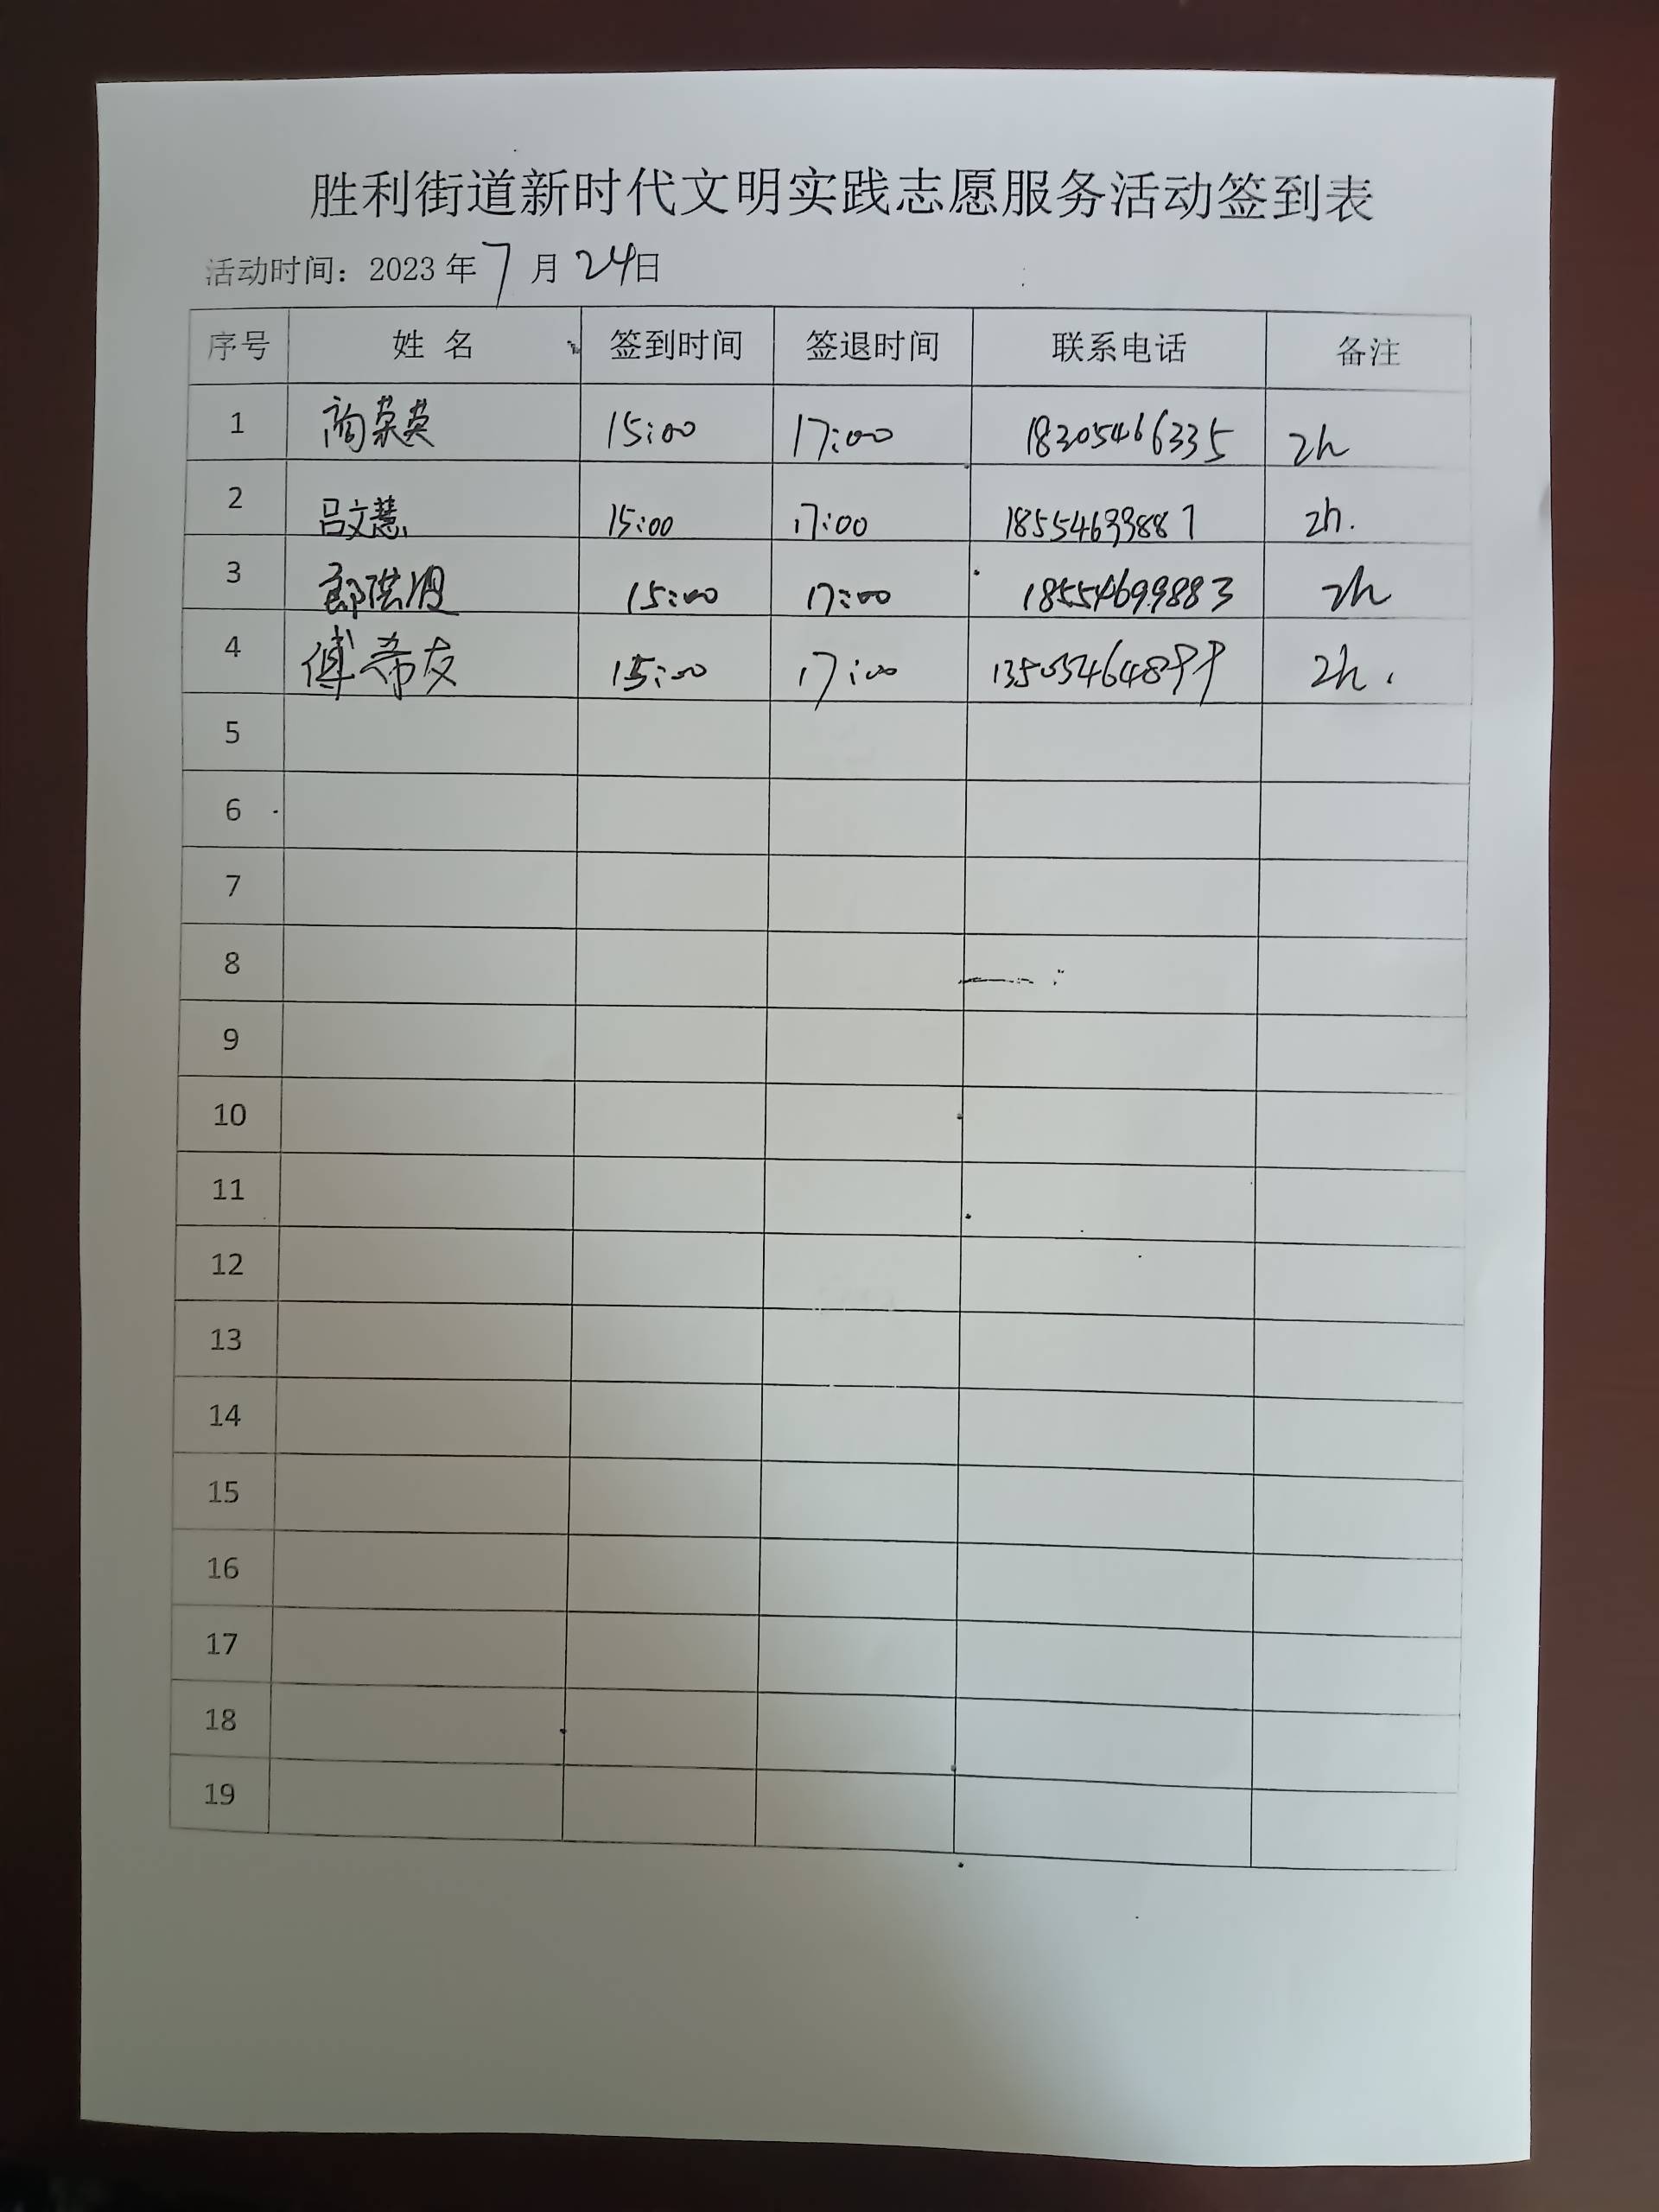 胜利街道新时代文明实践志愿服务活动签到表
活动时间：2023年7月24日
序号 姓名 签到时间 签退时间 联系电话 备注
1 荣英 15:00 17:00 18205466335 2h
2 吕文慧 15:00 17:00 18554639887 2h.
3 15:00 17:00 18554699883 2h
4 傅希友 15:00 17:00 2h.
5
6
7
8
9
10
11
12
13
14
15
16
17
18
19